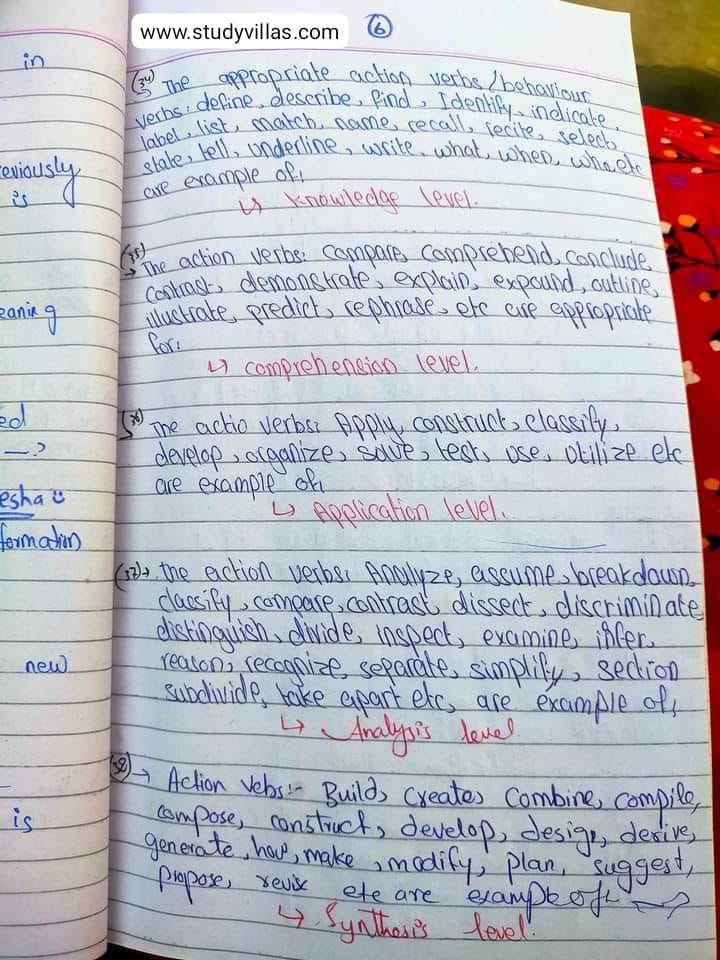 www.studyvillas.com
6
in
(34) → The appropriate action verbs/behaviour
verbs: define, describe, find, Identify, indicate,
label, list, match, name, recall, recite, select,
state, tell, underline, write, what, when, who etc
eviously
is
are example of,
↳ Knowledge level.
(35)
→ The action verbs: compare, comprehend, conclude
contrast, demonstrate, explain, expound, outline,
eaning
illustrate, predict, rephrase, etc are appropriate
for,
↳ comprehension level.
ed
(36) The actio verbs: Apply, construct, classify,
—?
develop, organize, solve, test, use, utilize etc
esha
are example of,
↳ Application level.
formation
(37) → The action verbs: Analyze, assume, breakdown,
classify, compare, contrast, dissect, discriminate
distinguish, divide, inspect, examine, infer,
new
reason, recognize, separate, simplify, section
subdivide, take apart etc, are example of,
↳ Analysis level
(38) → Action verbs:- Build, Create, Combine, compile,
is
compose, construct, develop, design, derive,
generate, how, make, modify, plan, suggest,
propose, revise etc are example of:- →
↳ Synthesis level.